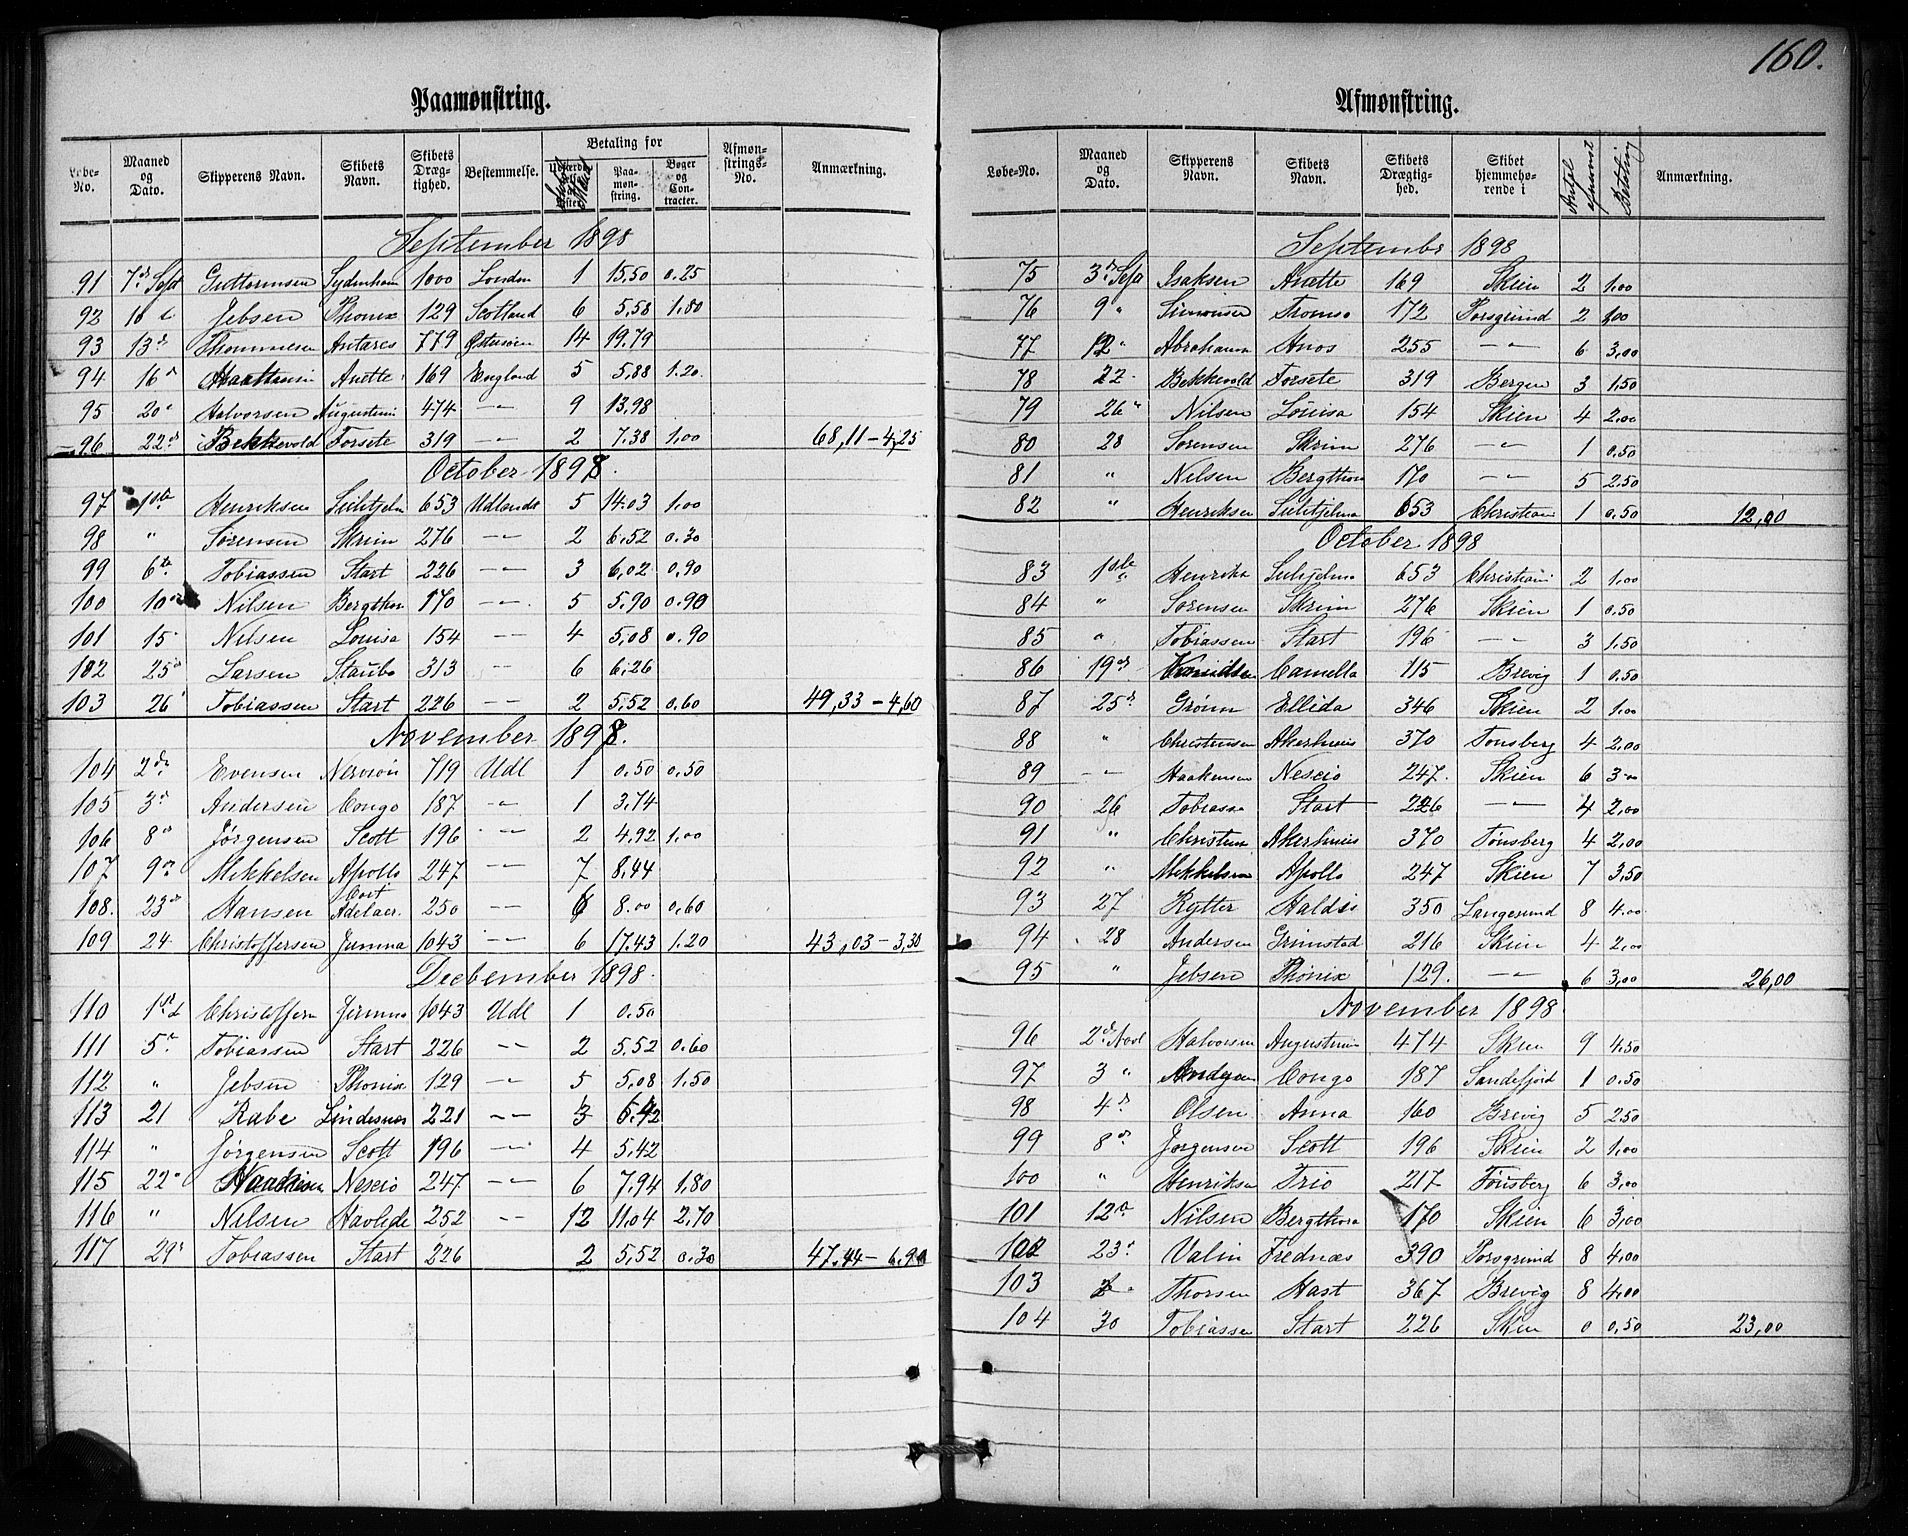 160.
Paamønstring.
Løbe-No. Maaned og Dato. Skipperens Navn. Skibets Navn. Skibets Drægtighed. Bestemmelse. Betaling for Paamønstring. Bøger og Contracter. Afmønstrings-No. Anmærkning.
September 1898
91 7de Sept Guttormsen Sydenham 1000 London 1 15,50 0.25
92 10 " Jebsen Phønix 129 Scotland 6 5,58 1,80
93 13d Thommesen Antares 779 Østersøen 14 19.79
94 16d Haakensen Anette 169 England 5 5,88 1.20
95 20d Halvorsen Augustinus 474 -"- 9 13,98
96 22d Bekkevold Forsete 319 -"- 2 7.38 1,00 68,11 - 4,25
October 1898.
97 1ste Henriksen Sulitjelma 653 Udlandet 5 14.03 1,00
98 " Sørensen Skrim 276 -"- 2 6.52 0.30
99 6te Tobiassen Start 226 -"- 3 6,02 0,90
100 10de Nilsen Bergthora 170 -"- 5 5,90 0.90
101 15 Nilsen Louisa 154 -"- 4 5,08 0.90
102 25d Larsen Staubo 313 -"- 6 6,26
103 26 Tobiassen Start 226 -"- 2 5,52 0.60 49,33 - 4,60
November 1898.
104 2de Evensen Nervion 719 Udl 1 0.50 0,50
105 3d Andersen Congo 187 -"- 1 3,74
106 8d Jørgensen Scott 196 -"- 2 4,92 1,00
107 9de Mikkelsen Apollo 247 -"- 7 8,44
108. 23d Hansen Cort Adelaer 250 -"- 6 8.00 0,60
109 24 Christoffersen Jumna 1043 -"- 6 17.43 1,20 43,03 - 3,30
Decbember 1898.
110 1st Christoffersen Jumna 1043 Udl 1 0.50
111 5te Tobiassen Start 226 -"- 2 5,52 0.60
112 " Jebsen Phønix 129 -"- 5 5,08 1,50
113 21 Rabe Lindesnæs 221 -"- 3 6.42
114 " Jørgensen Scott 196 -"- 4 5,42
115 22d Haakensen Nescio 247 -"- 6 7,94 1,80
116 " Nilsen Havlide 252 -"- 12 11,04 2,70
117 29d Tobiassen Start 226 2 5,52 0.30 47.44 - 6.90
Afmønstring.
Løbe-No. Maaned og Dato. Skipperens Navn. Skibets Navn. Skibets Drægtighed. Skibet hjemmehørende i Antal afmønst Betaling Anmærkning.
Septembr 1898
75 3d Sept Isaksen Anette 169 Skien 2 1,00
76 9 " Simonsen Tromsø 172 Porsgrund 2 1,00
77 12 " Abrahamsen Anos 255 -"- 6 3,00
78 22 Bekkevold Forsete 319 Bergen 3 1,50
79 26 " Nilsen Louisa 154 Skien 4 2,00
80 28 Sørensen Skrim 276 -"- 1 0.50
81 " Nilsen Bergthora 170 -"- 5 2,50
82 " Henriksen Sulitjelma 653 Christiania 1 0,50 12,00
October 1898
83 1ste Henriksen Sulitjelma 653 Christiania 2 1,00
84 " Sørensen Skrim 276 Skien 1 0,50
85 " Tobiassen Start 196 -"- 3 1,50
86 19de Knudsen Camella 115 Brevig 1 0,50
87 25d Grønn Ellida 346 Skien 2 1,00
88 " Christensen Akershuus 370 Tønsberg 4 2,00
89 -"- Haakensen Nescio 247 Skien 6 3,00
90 26 Tobiassen Start 226 -"- 4 2,00
91 " Christensen Akershuus 370 Tønsberg 4 2,00
92 " Mikkelsen Apollo 247 Skien 7 3,50
93 27 Rytter Haldis 350 Langesund 8 4.00
94 28 Andersen Grimstad 216 Skien 4 2,00
95 " Jebsen Phønix 129. -"- 6 3,00 26,00
November 1898
96 2d Novl Halvorsen Augustinus 474 Skien 9 4.50
97 3 " Andersen Congo 187 Sandefjord 1 0.50
98 4d Olsen Anna 160 Brevig 5 2.50
99 8de Jørgensen Scott 196 Skien 2 1,00
100 " Henriksen Trio 217 Tønsberg 6 3,00
101 12te Nilsen Bergthora 170 Skien 6 3,00
102 23d Valin Frednæs 390 Porsgrund 8 4,00
103 Thorsen Hast 367 Brevig 8 4,00
104 30 Tobiassen Start 226 Skien 0 0,50 23,00